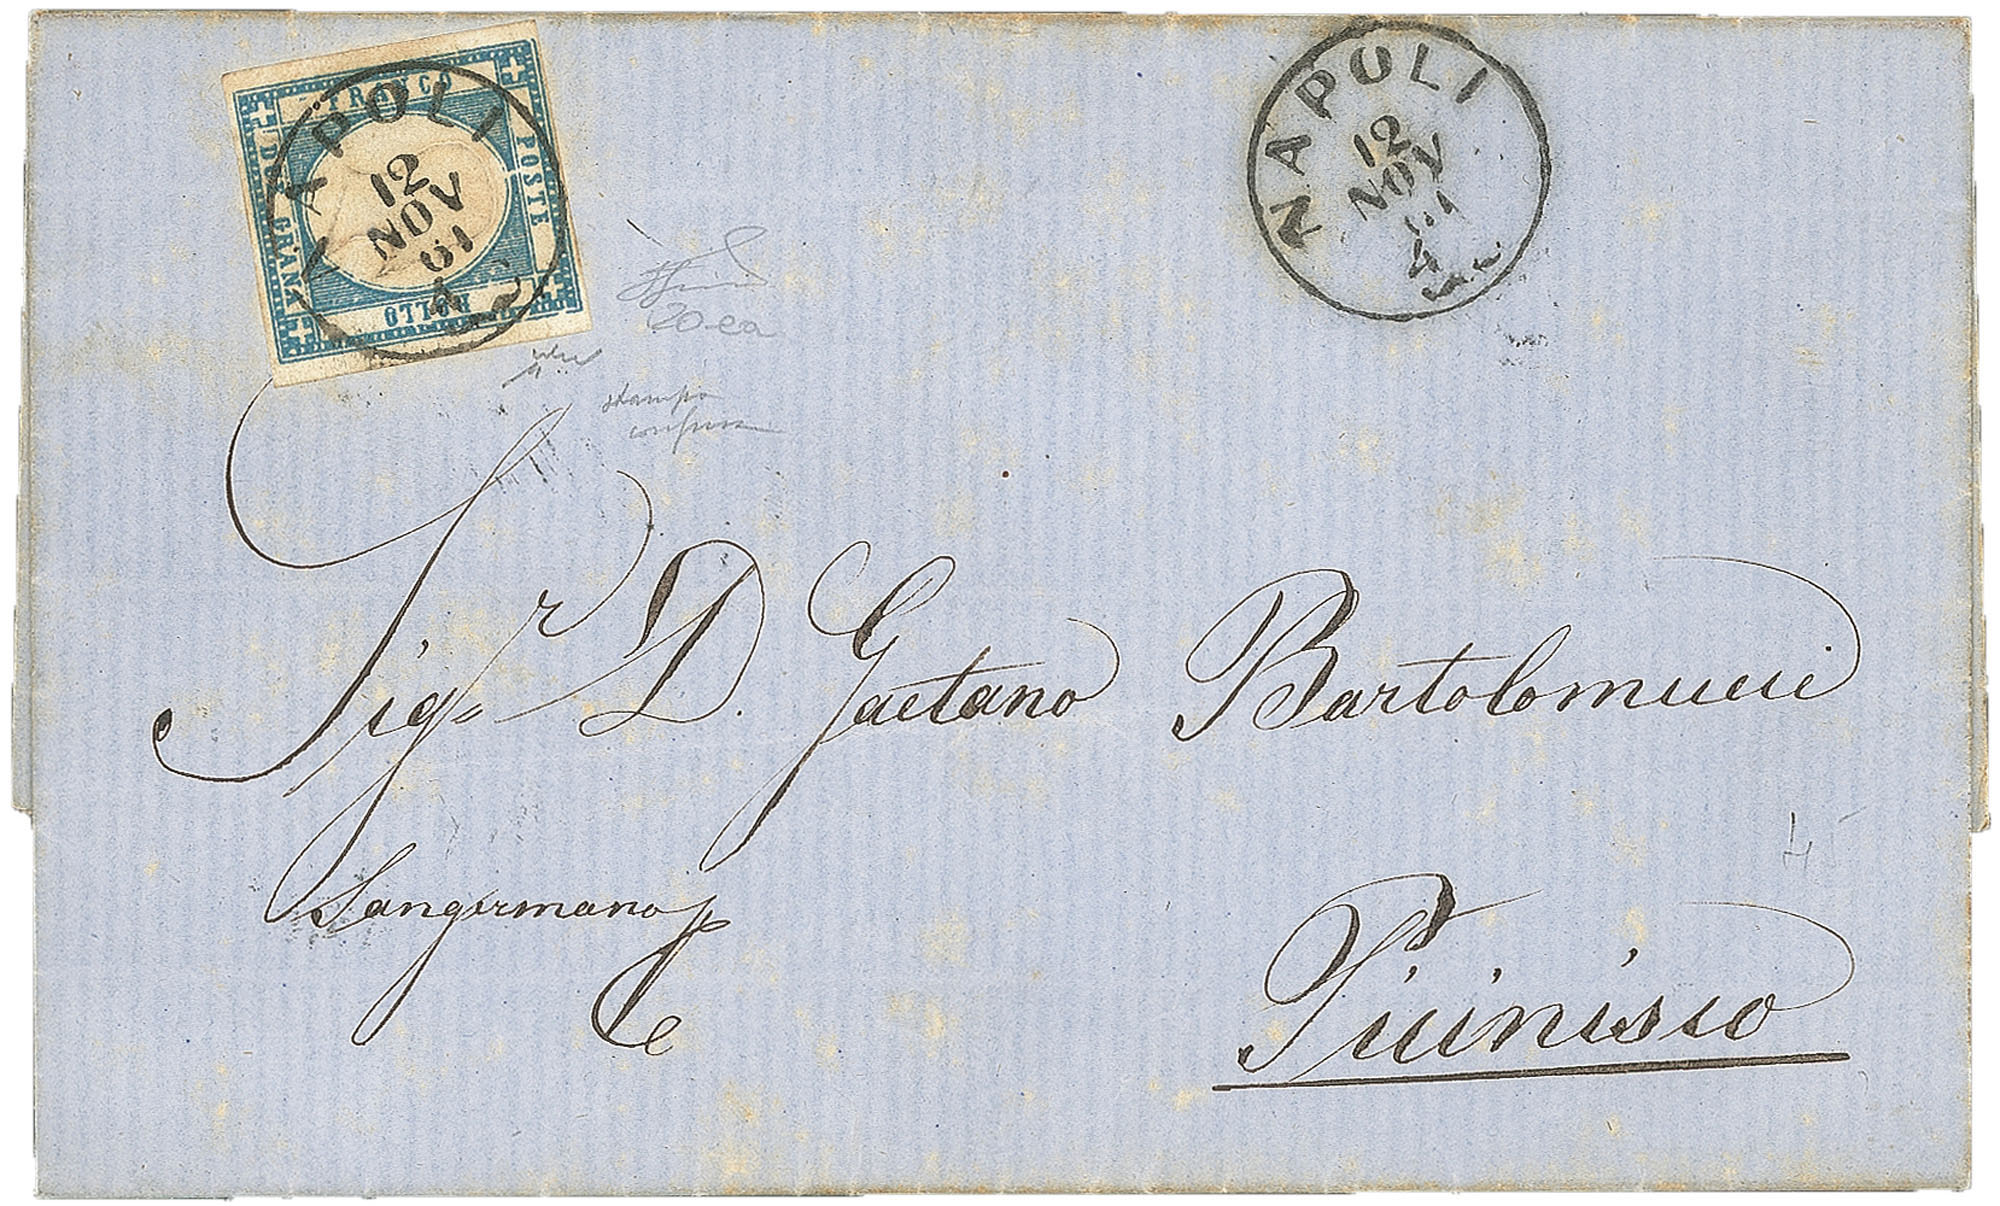 FRANCO
POSTE
BOLLO
DUE GRANA
NAPOLI
12
NOV
61
4 S
NAPOLI
12
NOV
61
4 S
20.ca
stampa
confusa
Sigr. D. Gaetano Bartolomucci
Sangermano p
Picinisco